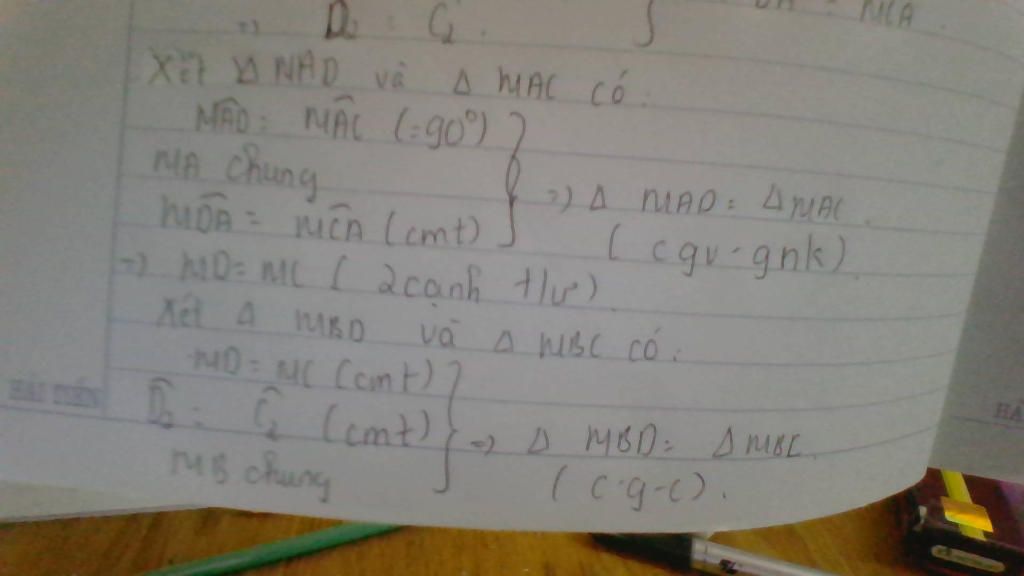 => D̂₂ = Ĉ₂. } MCA.
Xét Δ MAD và Δ MAC có:
MÂD = MÂC (=90°)
MA chung
MD̂A = MĈA (cmt)
=> Δ MAD = Δ MAC.
(cgv - gnk)
=> MD = MC (2 cạnh t/ư)
Xét Δ MBD và Δ MBC có:
MD = MC (cmt)
D̂₂ = Ĉ₂ (cmt)
MB chung
=> Δ MBD = Δ MBC.
(c-g-c).
HẢI TIẾN
HẢ